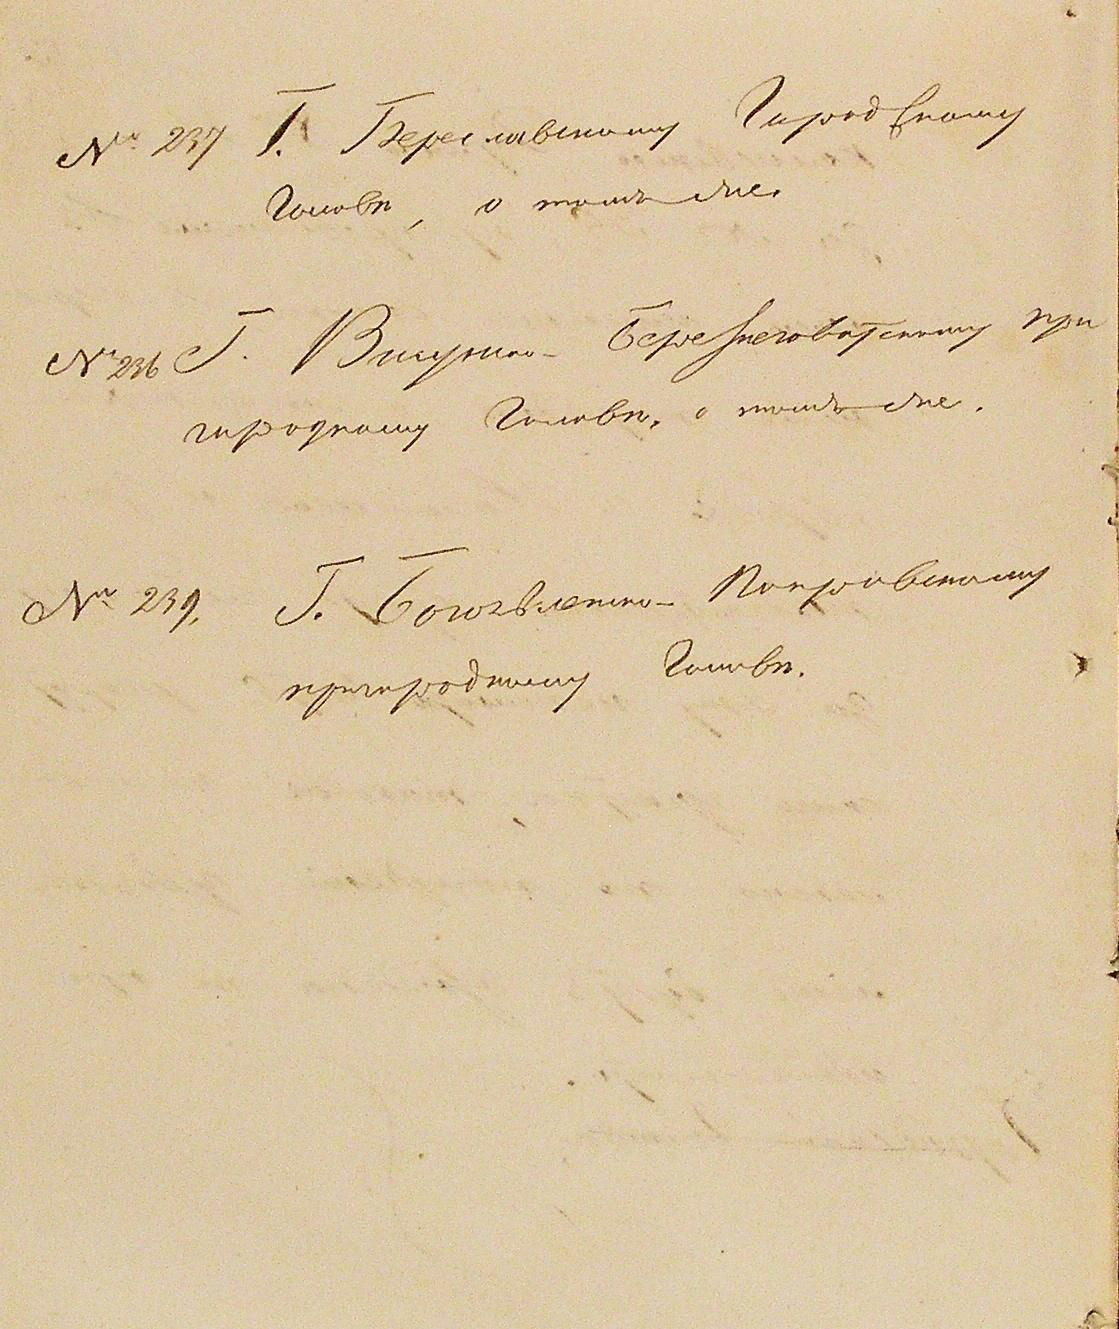 № 237 Г. Береславскому Городскому
Голове, о томъ же.
№ 236 Г. Висунско- Березнеговатскому при
городному Голове, о томъ же.
№ 239. Г. Богоявленско- Покровскому
пригородному Голове.